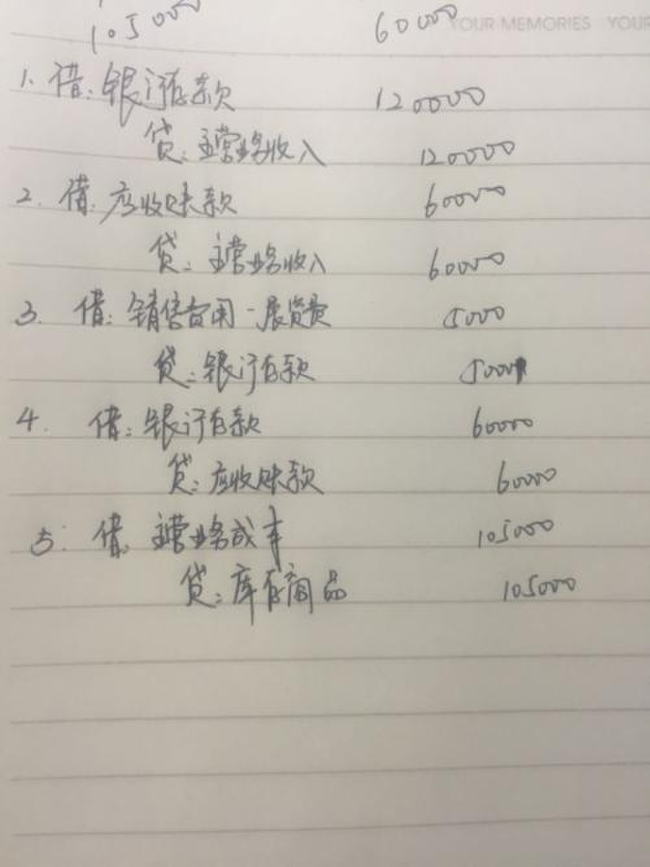 105000 60000 YOUR MEMORIES YOUR
1. 借: 银行存款 120000
贷: 主营业务收入 120000
2. 借: 应收账款 60000
贷: 主营业务收入 60000
3. 借: 销售费用-展览费 5000
贷: 银行存款 5000
4. 借: 银行存款 60000
贷: 应收账款 60000
5. 借: 主营业务成本 105000
贷: 库存商品 105000